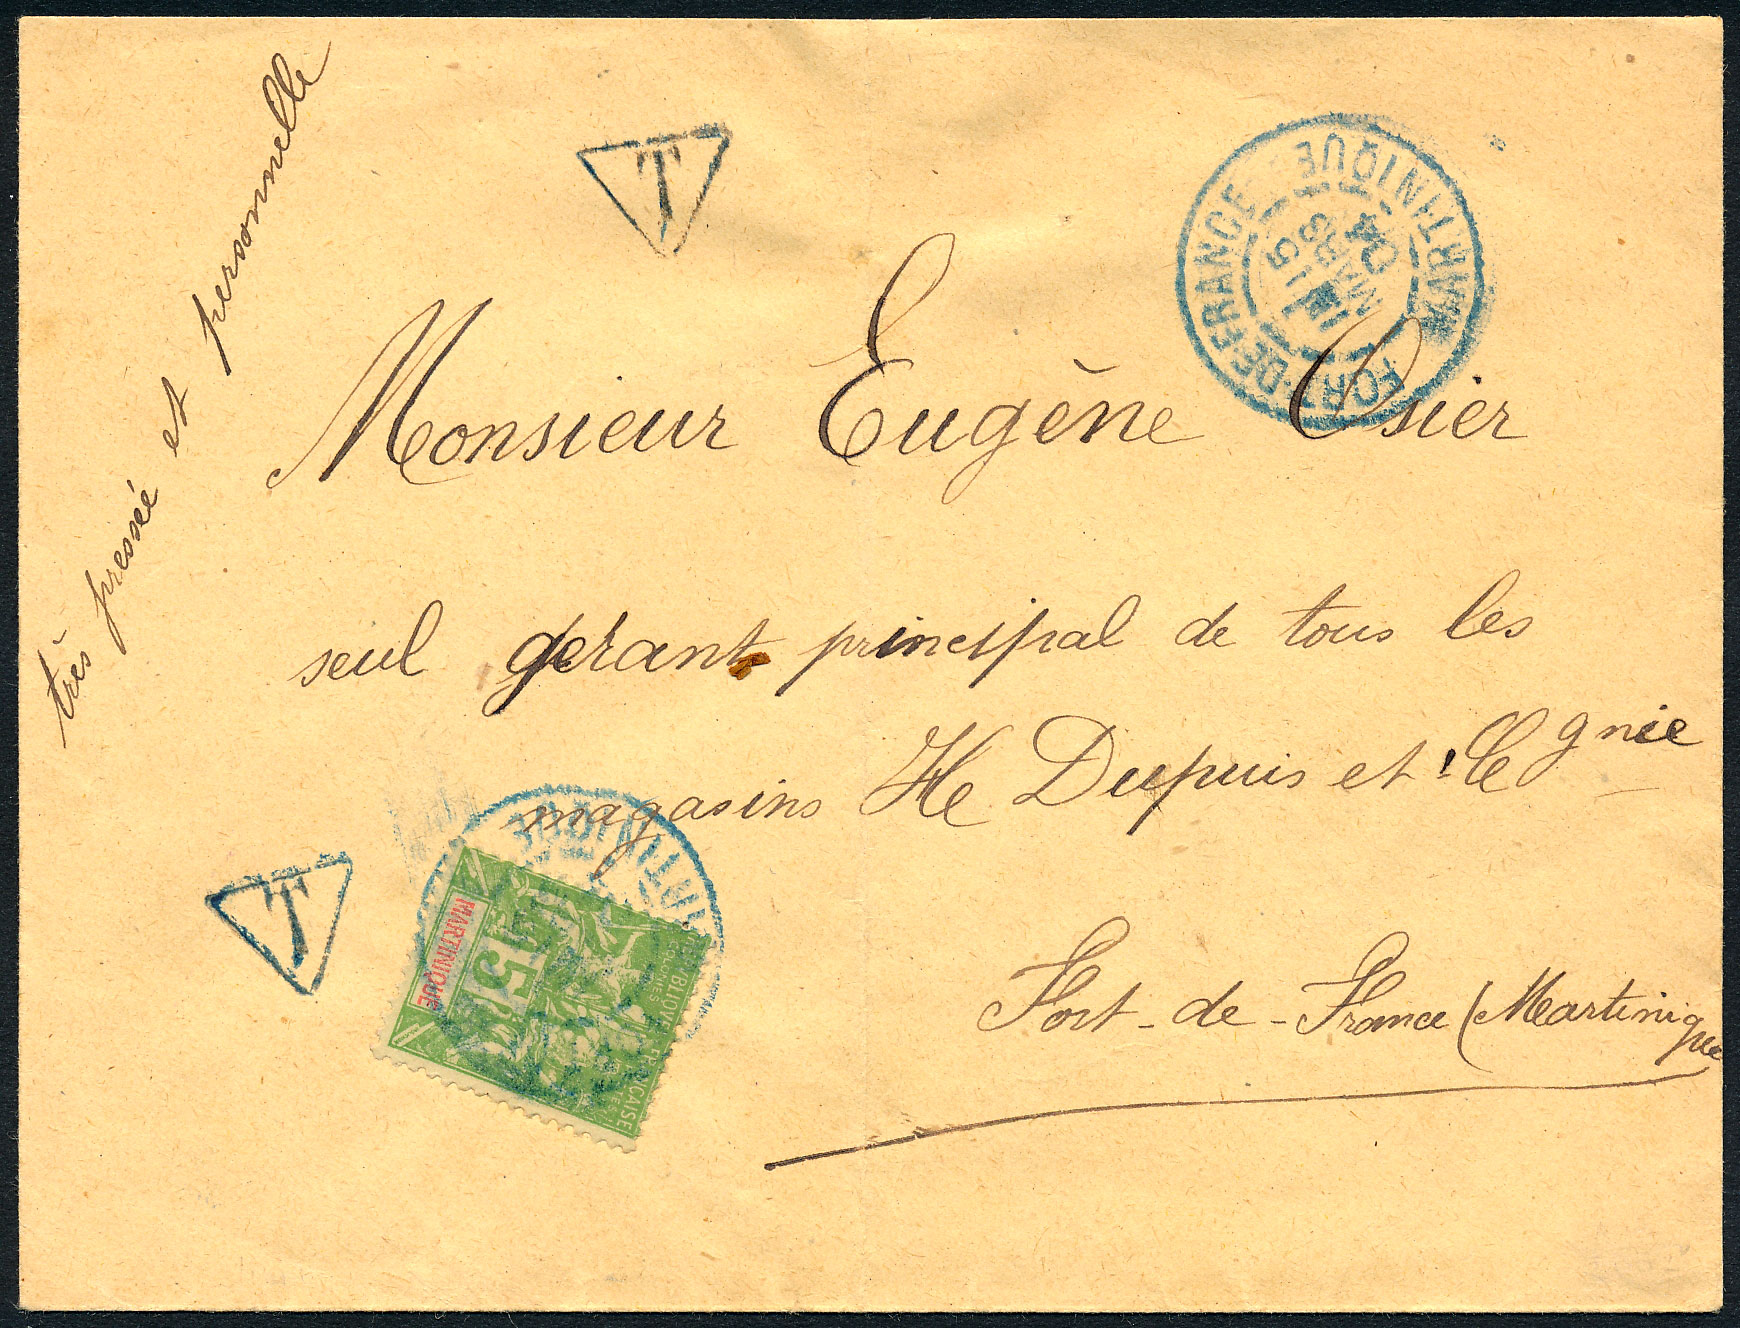 très pressée et personnelle
T
MARTINIQUE
FORT-DE-FRANCE
15
MARS
04
Monsieur Eugène Osier
seul gérant principal de tous les
magasins H Dupuis et Cgnie
Fort-de-France (Martinique
T
MARTINIQUE
5